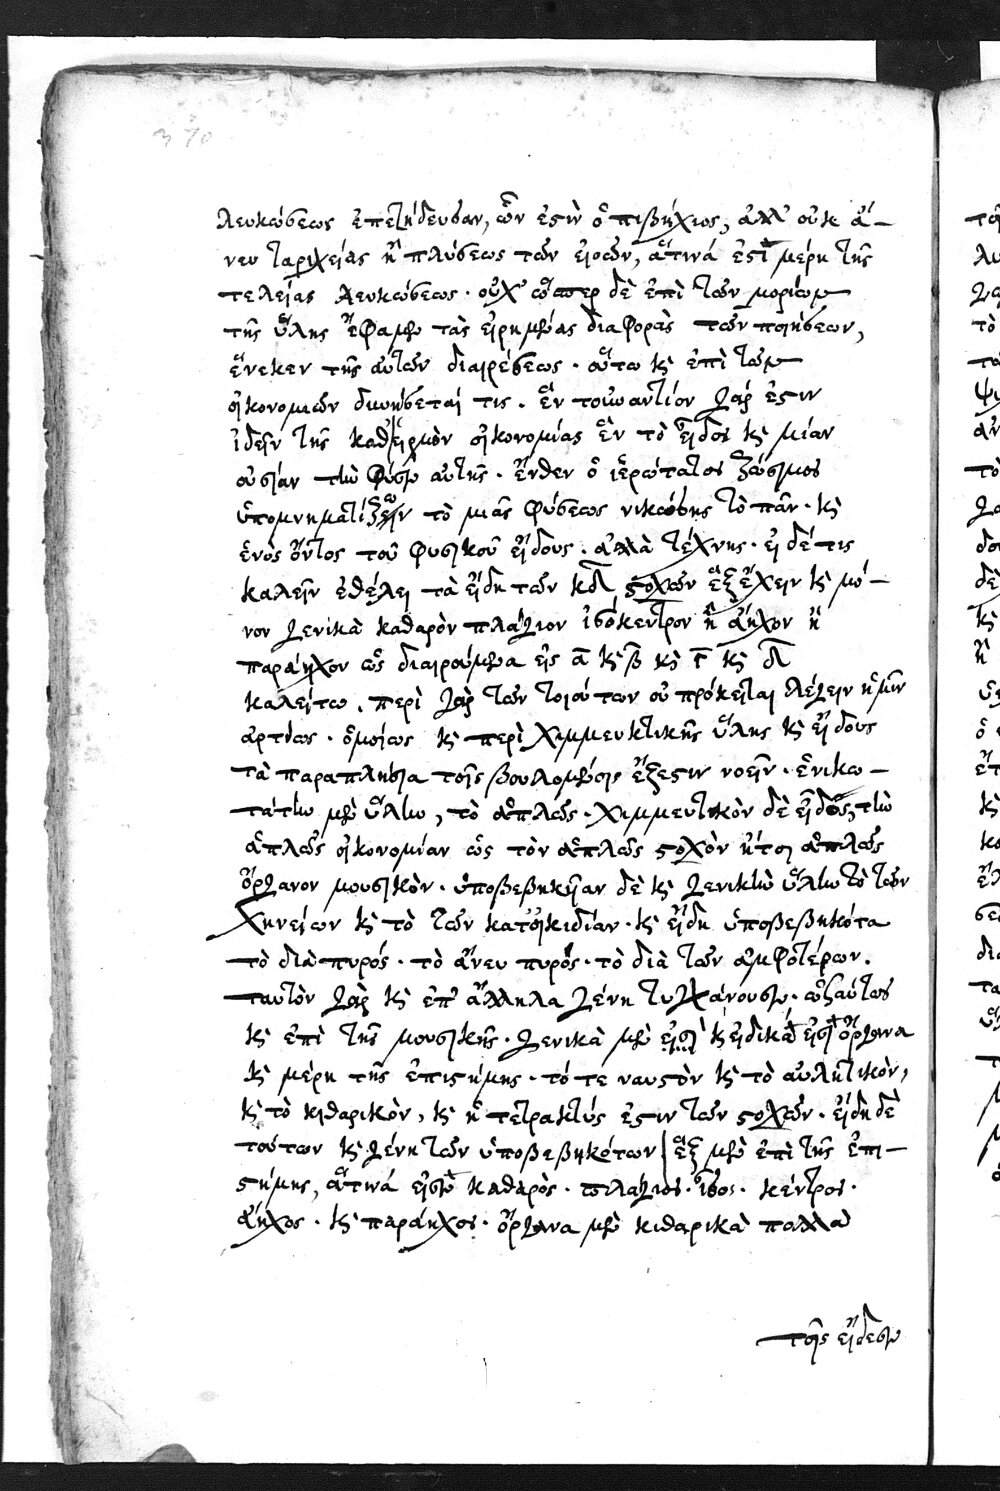 370
λευκώσεως ἐπετήδευσαν, ὧν ἐστὶν ὁ πιβήχιος, ἀλλ' οὐκ ἄ-
νευ ταριχείας ἢ πλύσεως τῶν εἰδῶν, ἅτινά ἐστι μέρη τῆς
τελείας λευκώσεως. οὐχ ὥσπερ δὲ ἐπὶ τῶν μορίων
τῆς ὕλης ἔφαμεν τὰς εἰρημένας διαφορὰς τῶν ποιήσεων,
ἕνεκεν τῆς αὐτῶν διαιρέσεως. οὕτω κὶ ἐπὶ τῶν
οἰκονομιῶν δυνήσεταί τις. ἓν τοὐναντίον γάρ ἐστιν
ἰδεῖν τῆς καθ' εἱρμὸν οἰκονομίας ἓν τὸ εἶδος κὶ μίαν
οὐσίαν τὴν φύσιν αὐτῆς. ἔνθεν ὁ ἱερώτατος ζώσιμος
ὑπομνηματίζων τὸ μιᾶς φύσεως νικώσης τὸ πᾶν. κὶ
ἑνὸς ὄντος τοῦ φυσικοῦ εἴδους. ἀλλὰ τέχνης. εἰ δέ τις
καλεῖν ἐθέλει τὰ εἴδη τῶν κδ στοχῶν ἓξ ἔχειν κὶ μό-
νον γενικὰ καθαρὸν πλάγιον ἰσόκεντρον ἢ ἄηχον ἢ
παράηχον ὡς διαιρούμενα εἰς α κὶ β κὶ γ κὶ δ
καλείτω. περὶ γὰρ τῶν τοιούτων οὐ πρόκειται λέγειν ἡμῖν
ἀρτίως. ὁμοίως κὶ περὶ χυμμευκτικῆς ὕλης κὶ εἴδους
τὰ παραπλήσια τοῖς βουλομένοις ἔξεστιν νοεῖν. ἑνικω-
τάτην μὲν ὕλην, τὸ ἁπλῶς. χυμμευτικὸν δὲ εἶδος, τὴν
ἁπλῶς οἰκονομίαν ὡς τὸν ἁπλῶς στοχὸν ἤτοι ἁπλῶς
ὄργανον μουσικόν. ὑποβεβηκυῖαν δὲ κὶ γενικὴν ὕλην τὸ τῶν
χηνείων κὶ τὸ τῶν κατοικιδίων. κὶ εἴδη ὑποβεβηκότα
τὸ διὰ πυρός. τὸ ἄνευ πυρός. τὸ διὰ τῶν ἀμφοτέρων.
ταυτὸν γὰρ κὶ ἐπ' ἄλληλα γένη τυγχάνουσιν. ὡσαύτως
κὶ ἐπὶ τῆς μουσικῆς. γενικὰ μὲν εἰσὶ κὶ εἰδικὰ εἰσὶ ὄργανα
κὶ μέρη τῆς ἐπιστήμης. τό τε ναυστὸν κὶ τὸ αὐλητικὸν,
κὶ τὸ κιθαρικὸν, κὶ ἡ τετρακτύς ἐστιν τῶν στοχῶν. εἴδη δὲ
τούτων κὶ γένη τῶν ὑποβεβηκότων ἓξ μὲν ἐπὶ τῆς ἐπι-
στήμης, ἅτινά εἰσιν καθαρὸς. πλάγιος. ἴσος. κέντρος.
ἄηχος. κὶ παράηχος. ὄργανα μὲν κιθαρικὰ πολλὰ
τοῖς εἴδεσιν